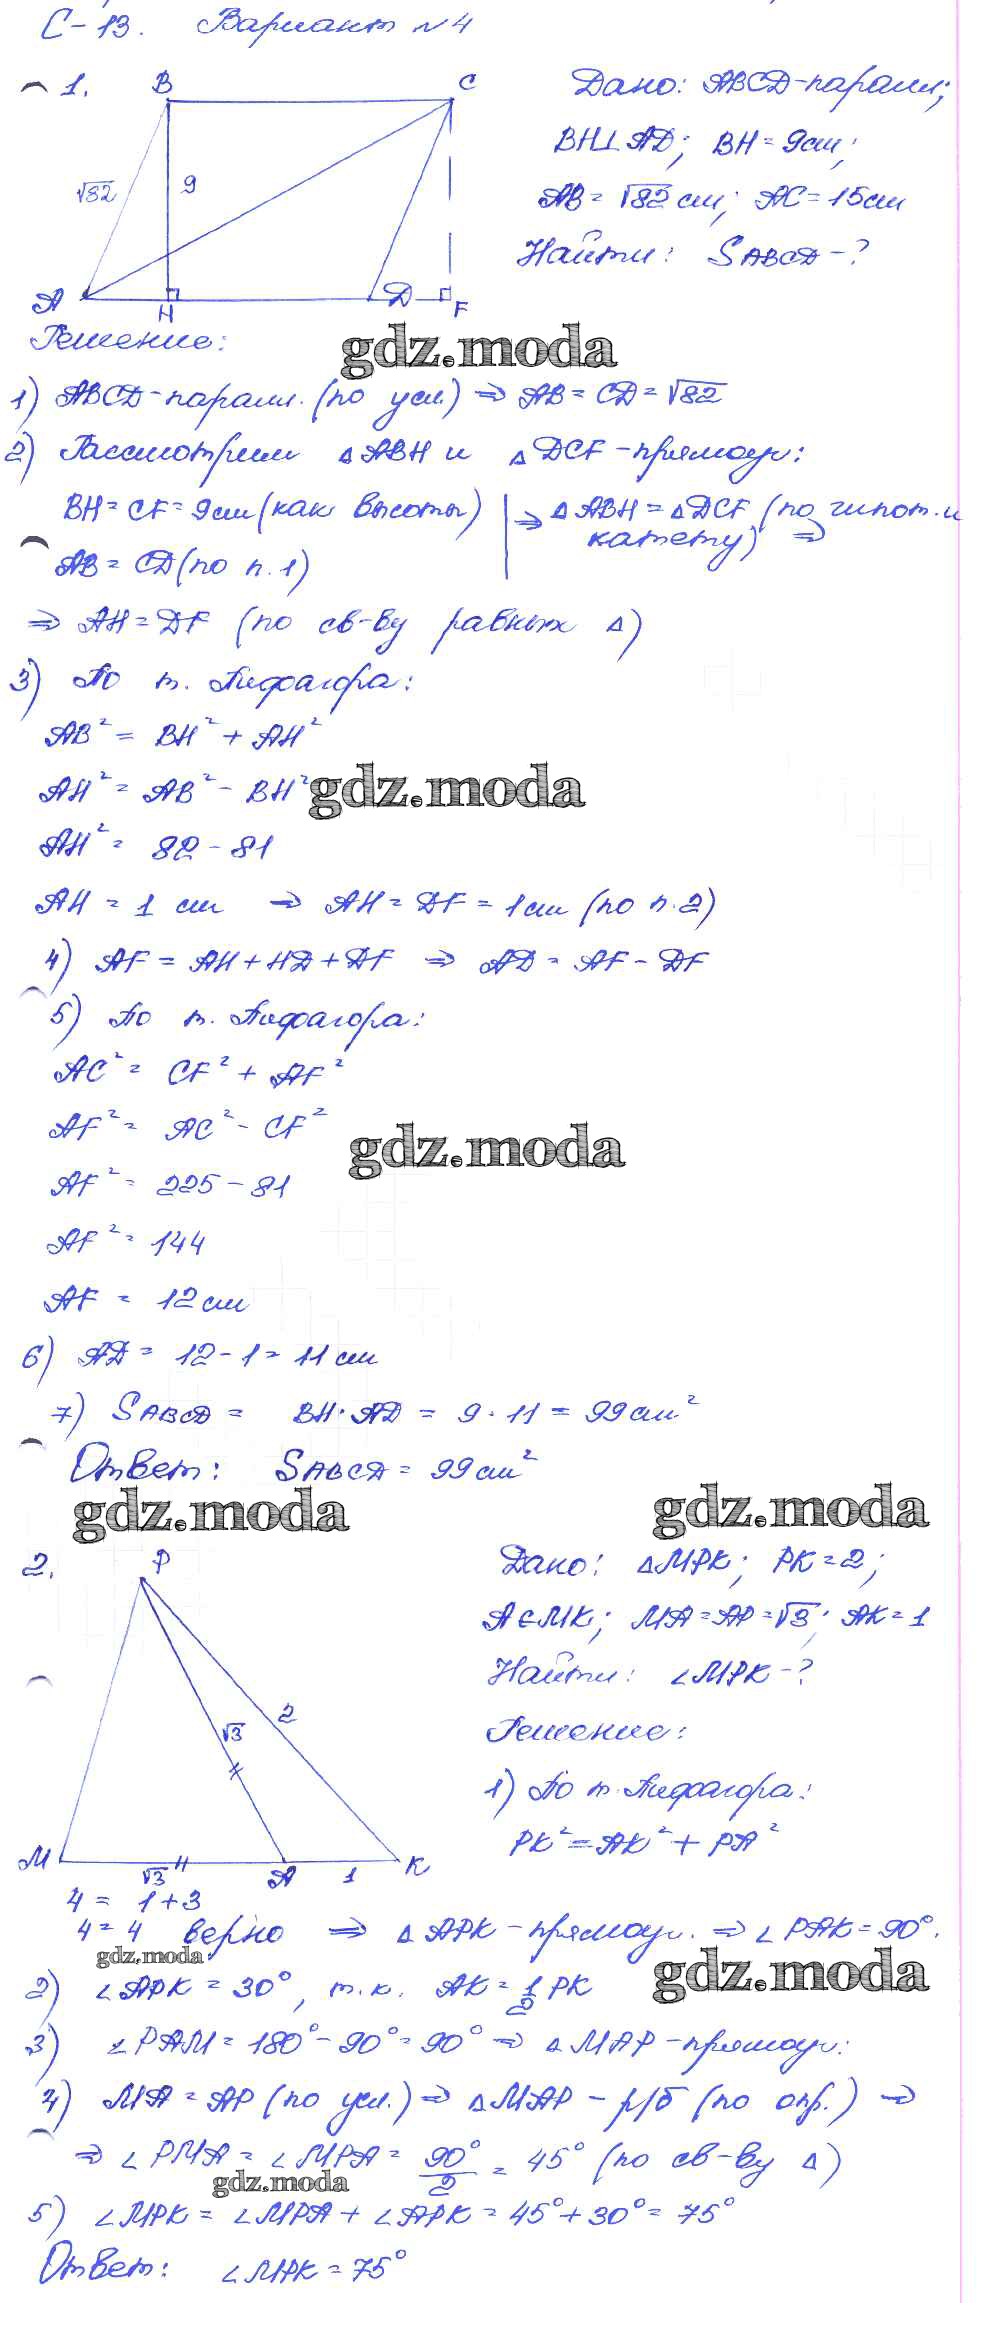 С-13. Вариант №4
1.
B
C
√82
9
A
H
D
F
Дано: ABCD-парал.;
BH⊥AD; BH = 9см;
AB = √82 см; AC = 15см
Найти: SABCD - ?
Решение:
gdz.moda
1) ABCD-парал. (по усл.) ⇒ AB = CD = √82
2) Рассмотрим △ABH и △DCF - прямоуг.:
BH = CF = 9см (как высоты)
AB = CD (по п.1)
⇒ △ABH = △DCF (по гипот. и
катету) ⇒
⇒ AH = DF (по св-ву равных △)
3) По т. Пифагора:
AB² = BH² + AH²
AH² = AB² - BH²
gdz.moda
AH² = 82 - 81
AH = 1 см ⇒ AH = DF = 1см (по п.2)
4) AF = AH + HD + DF ⇒ AD = AF - DF
5) По т. Пифагора:
AC² = CF² + AF²
AF² = AC² - CF²
gdz.moda
AF² = 225 - 81
AF² = 144
AF = 12см
6) AD = 12 - 1 = 11 см
7) SABCD = BH · AD = 9 · 11 = 99см²
Ответ: SABCD = 99см²
gdz.moda
gdz.moda
2.
P
2
√3
M
√3
A
1
K
Дано: △MPK; PK = 2;
A∈MK; MA = AP = √3; AK = 1
Найти: ∠MPK - ?
Решение:
1) По т. Пифагора:
PK² = AK² + PA²
4 = 1 + 3
4 = 4 верно ⇒ △APK - прямоуг. ⇒ ∠PAK = 90°.
gdz.moda
gdz.moda
2) ∠APK = 30°, т.к. AK = 1/2 PK
3) ∠PAM = 180° - 90° = 90° ⇒ △MAP - прямоуг.
4) MA = AP (по усл.) ⇒ △MAP - р/б (по опр.) ⇒
⇒ ∠PMA = ∠MPA = 90°/2 = 45° (по св-ву △)
gdz.moda
5) ∠MPK = ∠MPA + ∠APK = 45° + 30° = 75°
Ответ: ∠MPK = 75°